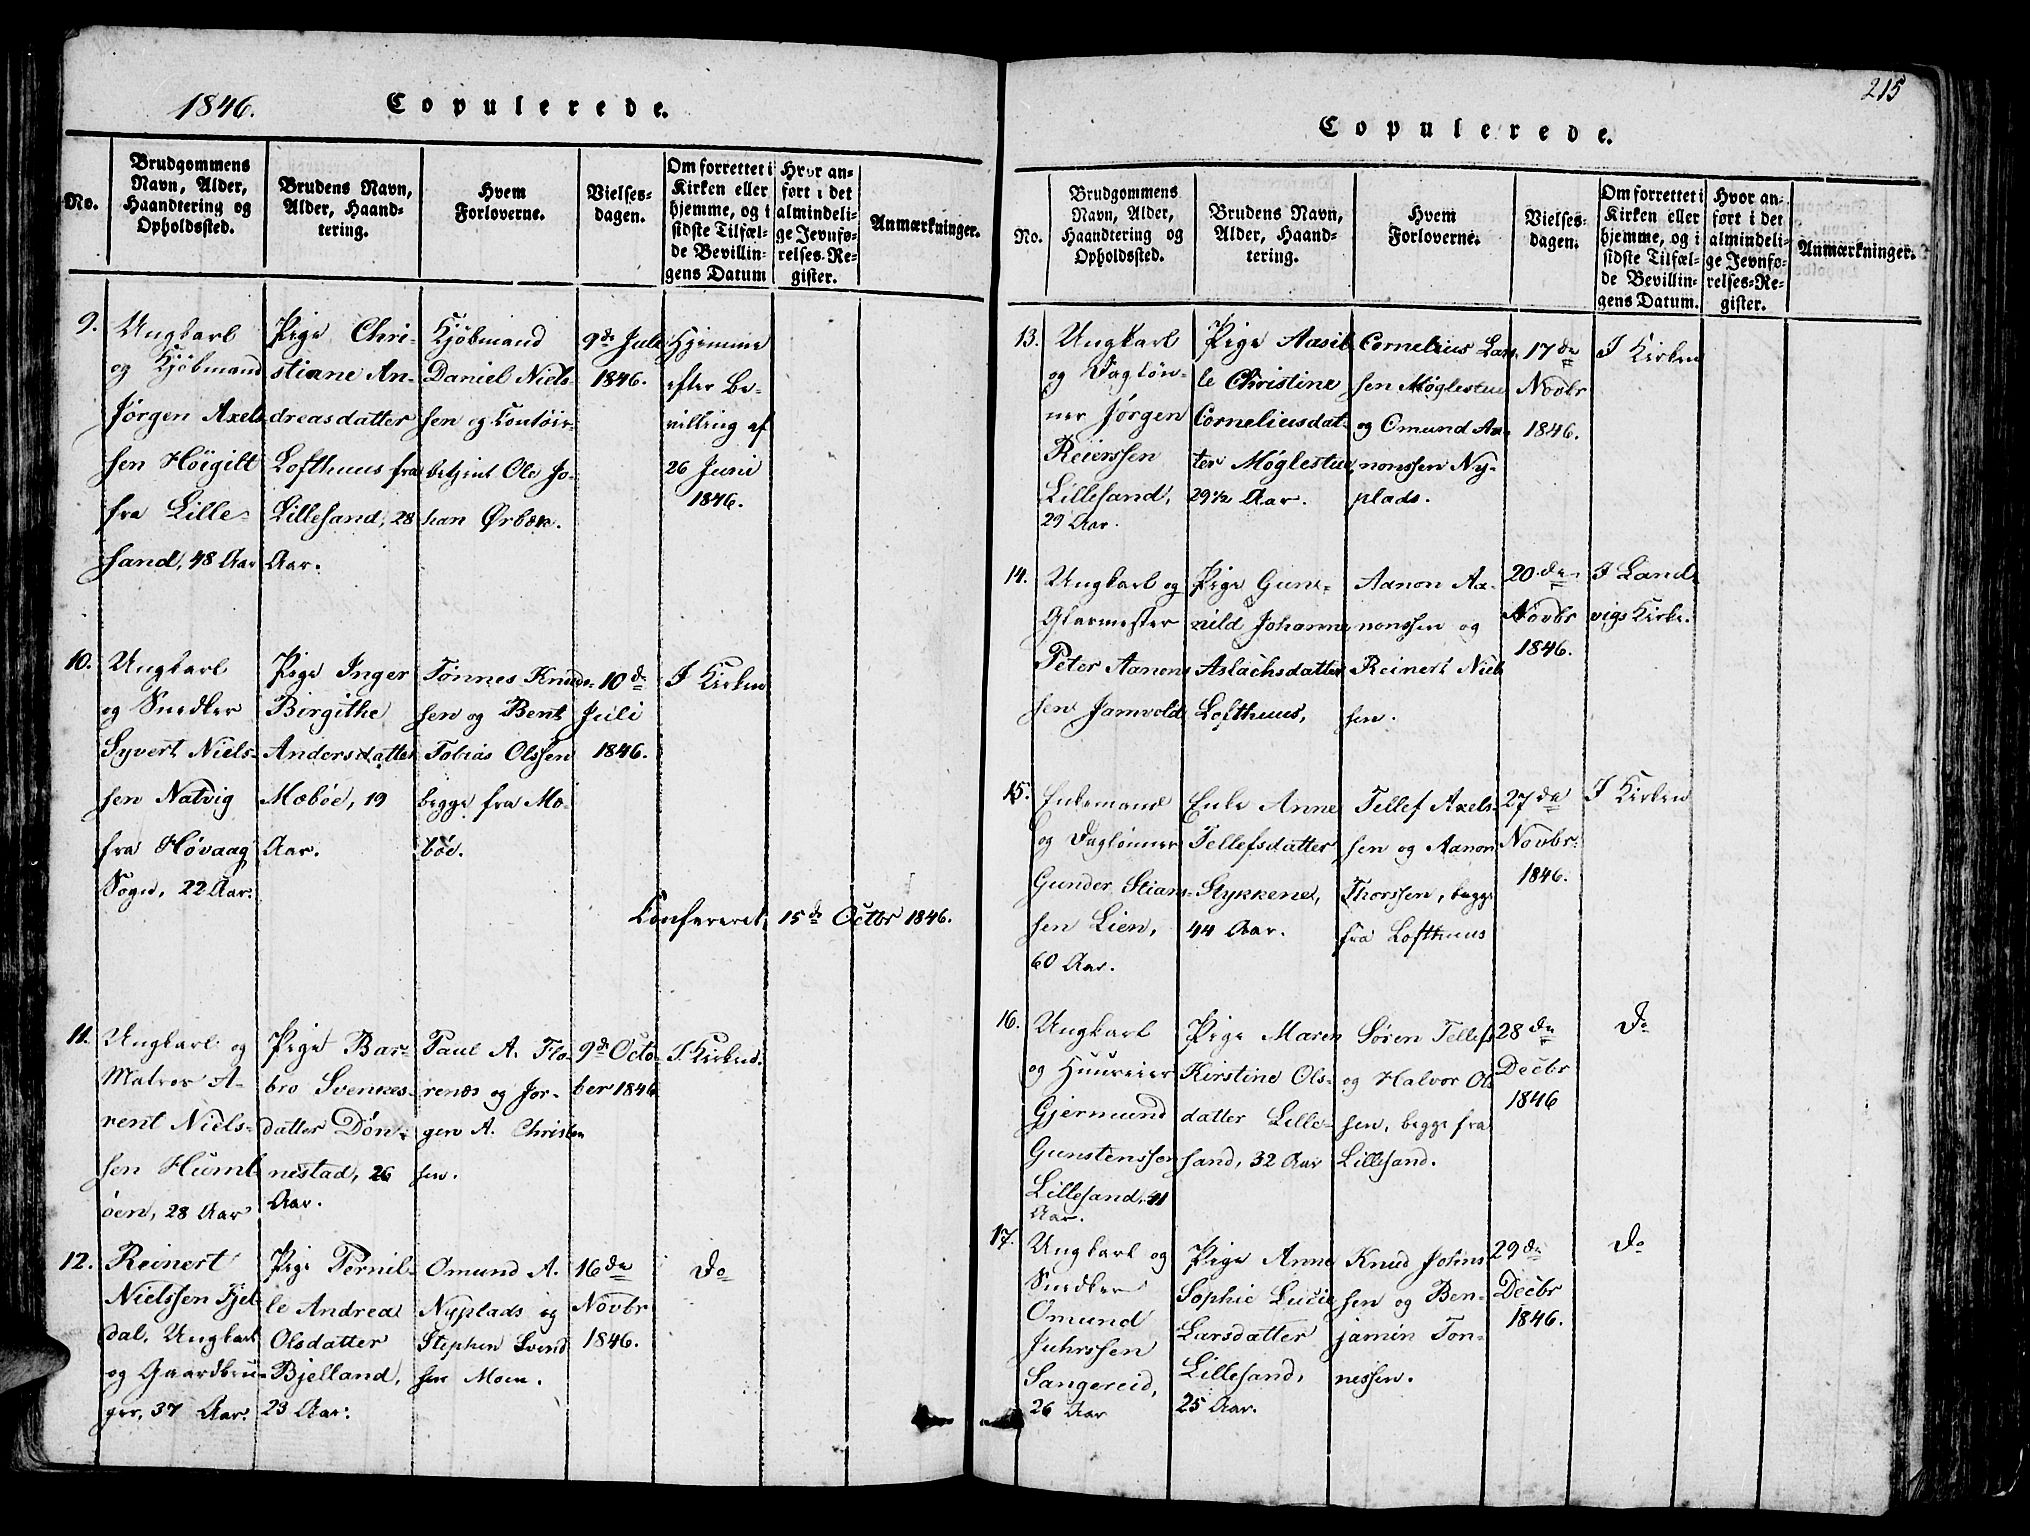 1846. Copulerede.
No.
Brudgommens
Navn, Alder,
Haandtering og
Opholdssted.
Brudens Navn,
Alder, Haand-
tering.
Hvem
Forloverne.
Vielses-
dagen.
Om forrettet i
Kirken eller
hjemme, og i
sidste Tilfæl-
de Bevillin-
gens Datum
Hvor an-
ført i det
almindeli-
ge Jevnfø-
relses-Re-
gister.
Anmærkninger.
9.
Ungkarl
og Kjøbmand
Jørgen Axel-
sen Höigilt
fra Lille-
sand, 48 Aar
Pige Chri-
stiane An-
dreasdatter
Lofthuus fra
Lillesand, 28
Aar.
Kjøbmand
Daniel Niels-
sen og Contoir-
betjent Ole Jo-
han Ørbæk.
9de Juli
1846.
Hjemme
efter Be-
villing af
26 Juni
1846.
10.
Ungkarl
og Snedker
Syvert Niels-
sen Natvig
fra Høvaag
Sogn, 22 Aar.
Pige Inger
Birgithe
Andersdatter
Moböe, 19
Aar.
Tønnes Knuds-
sen og Bent
Tobias Olssen
begge fra Mo-
böe.
10de
Juli
1846.
I Kirken
Confereret, 15de Octbr 1846.
11.
Ungkarl og
Matros A-
rent Niels-
sen Huml-
öen, 28 Aar
Pige Bar-
bro Svenkes-
datter Døn-
nestad, 26
Aar.
Paul A. Flo-
renæs og Jør-
gen A. Christen
sen.
9de Octo-
ber 1846
I Kirken.
12.
Reinert
Nielssen Fjel-
dal, Ungkarl
og Gaardbru-
ger, 37 Aar.
Pige Pernil-
le Andrea
Olsdatter
Bjelland,
23 Aar.
Omund A.
Nyplads og
Stephen Svend
sen Moen.
16de
Novbr
1846.
Do
215
Copulerede.
No.
Brudgommens
Navn, Alder,
Haandtering og
Opholdssted.
Brudens Navn,
Alder, Haand-
tering.
Hvem
Forloverne.
Vielses-
dagen.
Om forrettet i
Kirken eller
hjemme, og i
sidste Tilfæl-
de Bevillin-
gens Datum.
Hvor an-
ført i det
almindeli-
ge Jevnfø-
relses-Re-
gister.
Anmærkninger.
13.
Ungkarl
og Dagløn-
ner Jørgen
Reierssen
Lillesand,
29 Aar.
Pige Aasil-
le Christine
Corneliusdat-
ter Møglestue,
29½ Aar.
Cornelius Lar-
sen Møglestue
og Omund Aa-
nonssen Ny-
plads.
17de
Novbr
1846.
I Kirken
14.
Ungkarl og
Glarmester
Peter Aanons
sen Jamvold
Pige Gun-
nild Johanne
Aslachsdatter
Lofthuus,
Aanon Aa-
nonssen og
Reinert Niel-
sen.
20de
Novbr
1846.
I Land-
vigs Kirke.
15.
Enkemand
og Daglönner
Gunder Stians-
sen Lien,
60 Aar.
Enke Anne
Tellefsdatter
Stykkene,
44 Aar.
Tellef Axels-
sen og Aanon
Thorssen, begge
fra Lofthuus
27de
Novbr.
1846.
I Kirken
16.
Ungkarl
og Huuseier
Gjermund
Gunstenssen
Lillesand, 41
Aar.
Pige Maren
Kirstine Ols-
datter Lille-
sand, 32 Aar
Søren Tellefs
og Halvor Ol-
sen, begge fra
Lillesand.
28de
Decbr
1846
Do
17.
Ungkarl og
Snedker
Omund
Juhrssen
Sangereid,
26 Aar
Pige Anne
Sophie Lucie
Larsdatter
Lillesand,
25 Aar.
Knud Johns
sen og Ben-
jamin Ton-
nessen.
29de
Decbr
1846.
Do